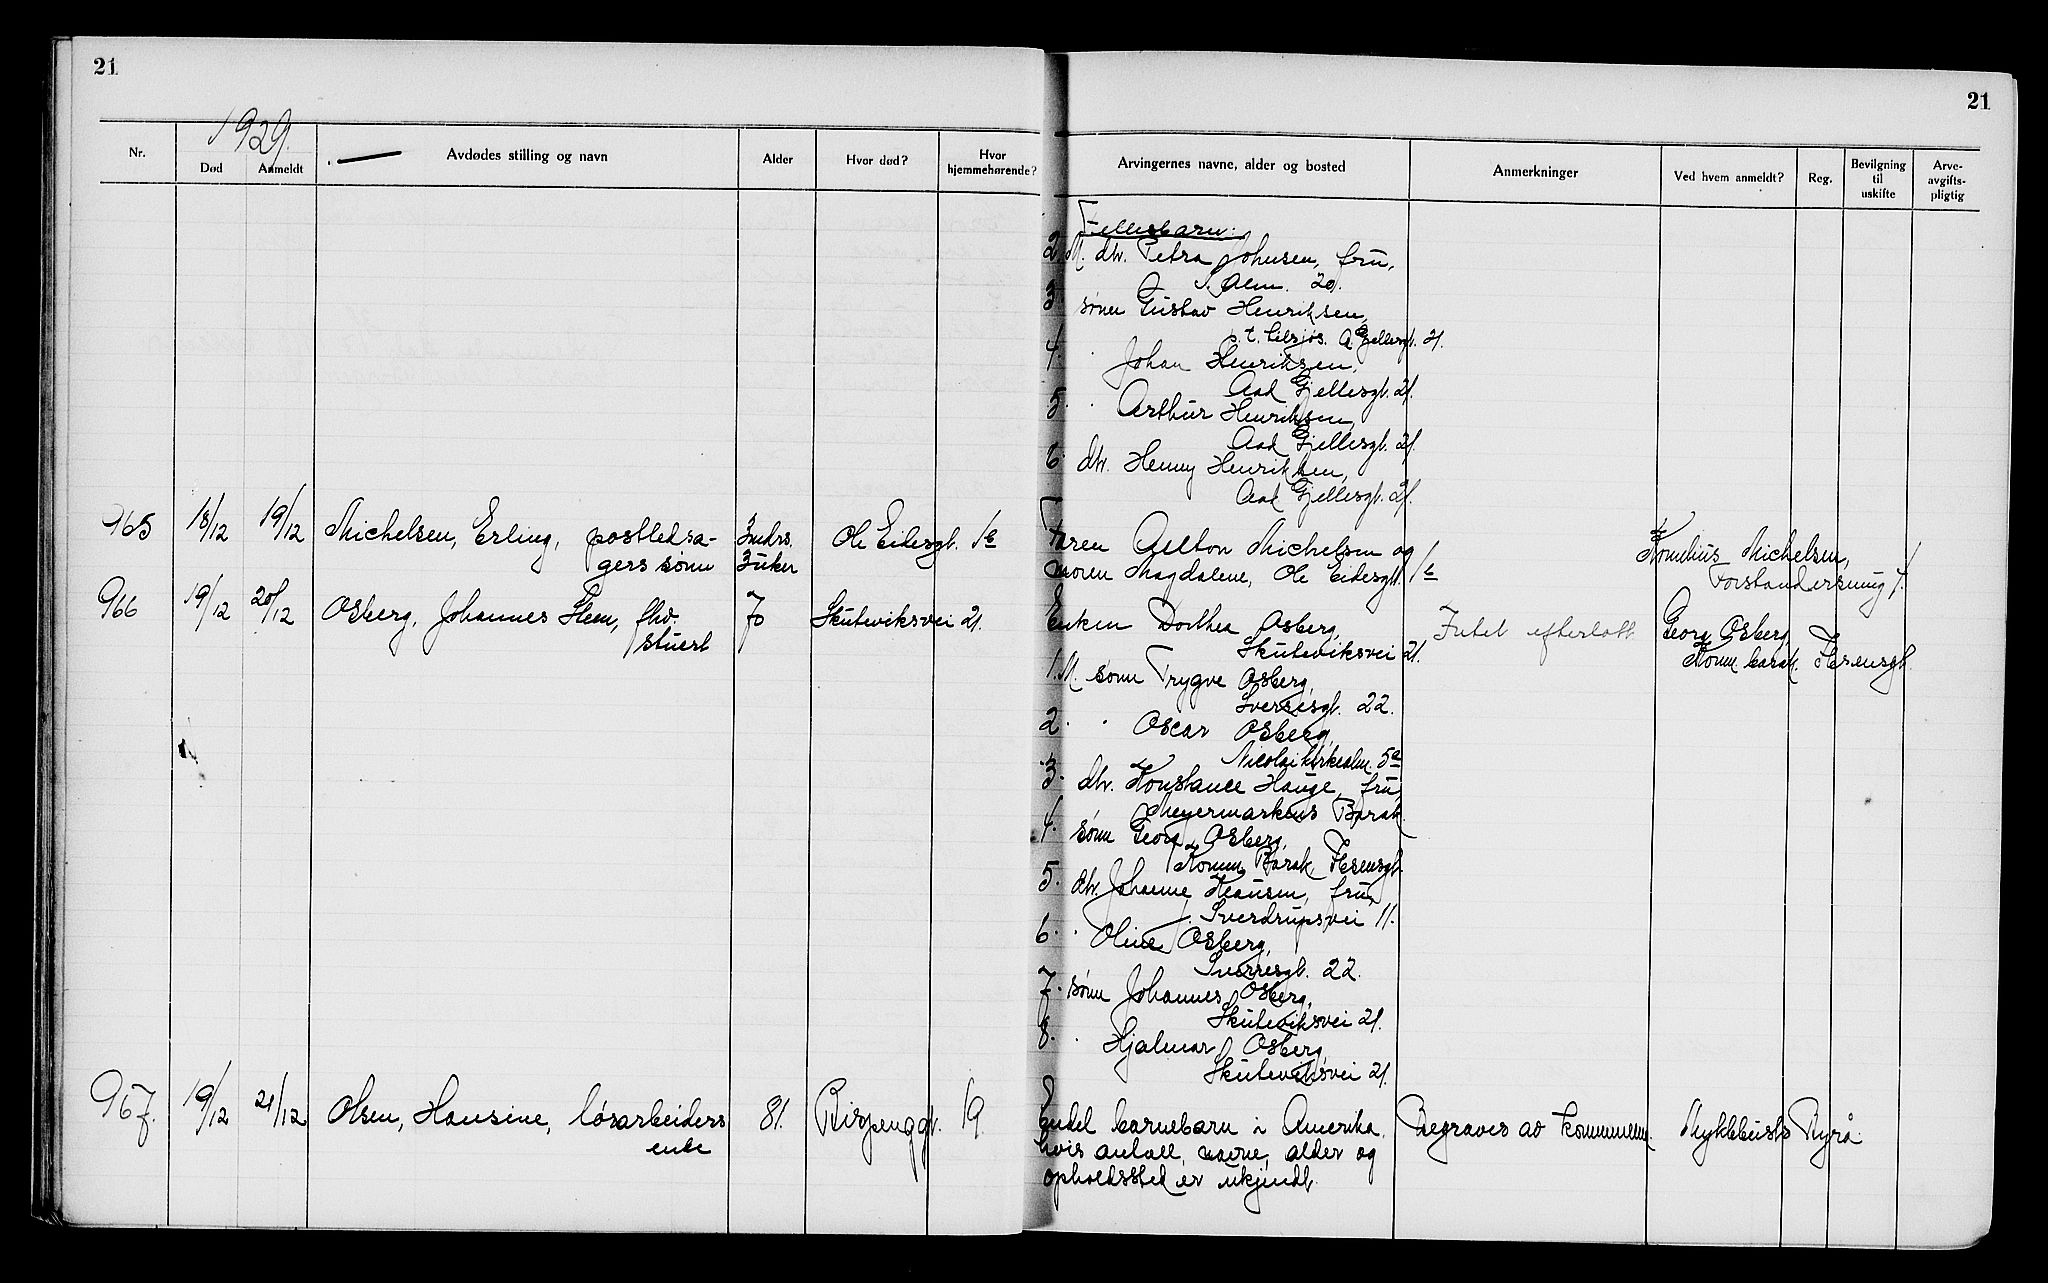 21
21
1929.
Nr.
Død
Anmeldt
Avdødes stilling og navn
Alder
Hvor død?
Hvor
hjemmehørende?
Arvingernes navne, alder og bosted
Anmerkninger
Ved hvem anmeldt?
Reg.
Bevilgning
til
uskifte
Arve-
avgifts-
pligtig
Fellesbarn:
2. M. dtr. Petra Johnsen, fru,
Alm. 20.
3. sønn Gustav Henriksen,
Gjellesgt. 21.
4. Johan Henriksen,
Aad Gjellesgt. 21.
5. Arthur Henriksen,
Aad Gjellesgt. 21.
6. dtr. Henny Henriksen,
Aad Gjellesgt. 21.
965 18/12 19/12 Michelsen, Erling, postledsa- 3 mdrs. Ole Eidesgt. 1c Faren Michelsen og Kornelius Michelsen,
gers sønn 3 uker moren Magdalene, Ole Eidesgt. 1c Forstandersmug 4.
966 19/12 20/12 Osberg, Johannes Flem, fhv. 70 Skuteviksvei 21. Enken Dorthea Osberg, Intet efterlatt Georg Osberg,
stuert Skuteviksvei 21. Komm. barak.
1. M. sønn Trygve Osberg,
Sverresgt. 22.
2. Oscar Osberg,
Nicolaikirkealm. 5a
3. dtr. Konstance Hauge, fru,
Meyermarkens Barak.
4. sønn Georg Osberg,
Komm. Barak
5. dtr. Johanne Hansen, fru,
J. Sverdrupsvei 11.
6. Oline Osberg,
Sverresgt. 22.
7. sønn Johannes Osberg,
Skuteviksvei 21.
8. Hjalmar Osberg,
Skuteviksvei 21.
967. 19/12 21/12 Olsen, Hansine, løsarbeiders 81. Bispenggt. 19. Endel barnebarn i Amerika Begraves av kommunen. Myklebusts Byrå
enke hvis antall, navne, alder og
opholdssted er ukjendt.